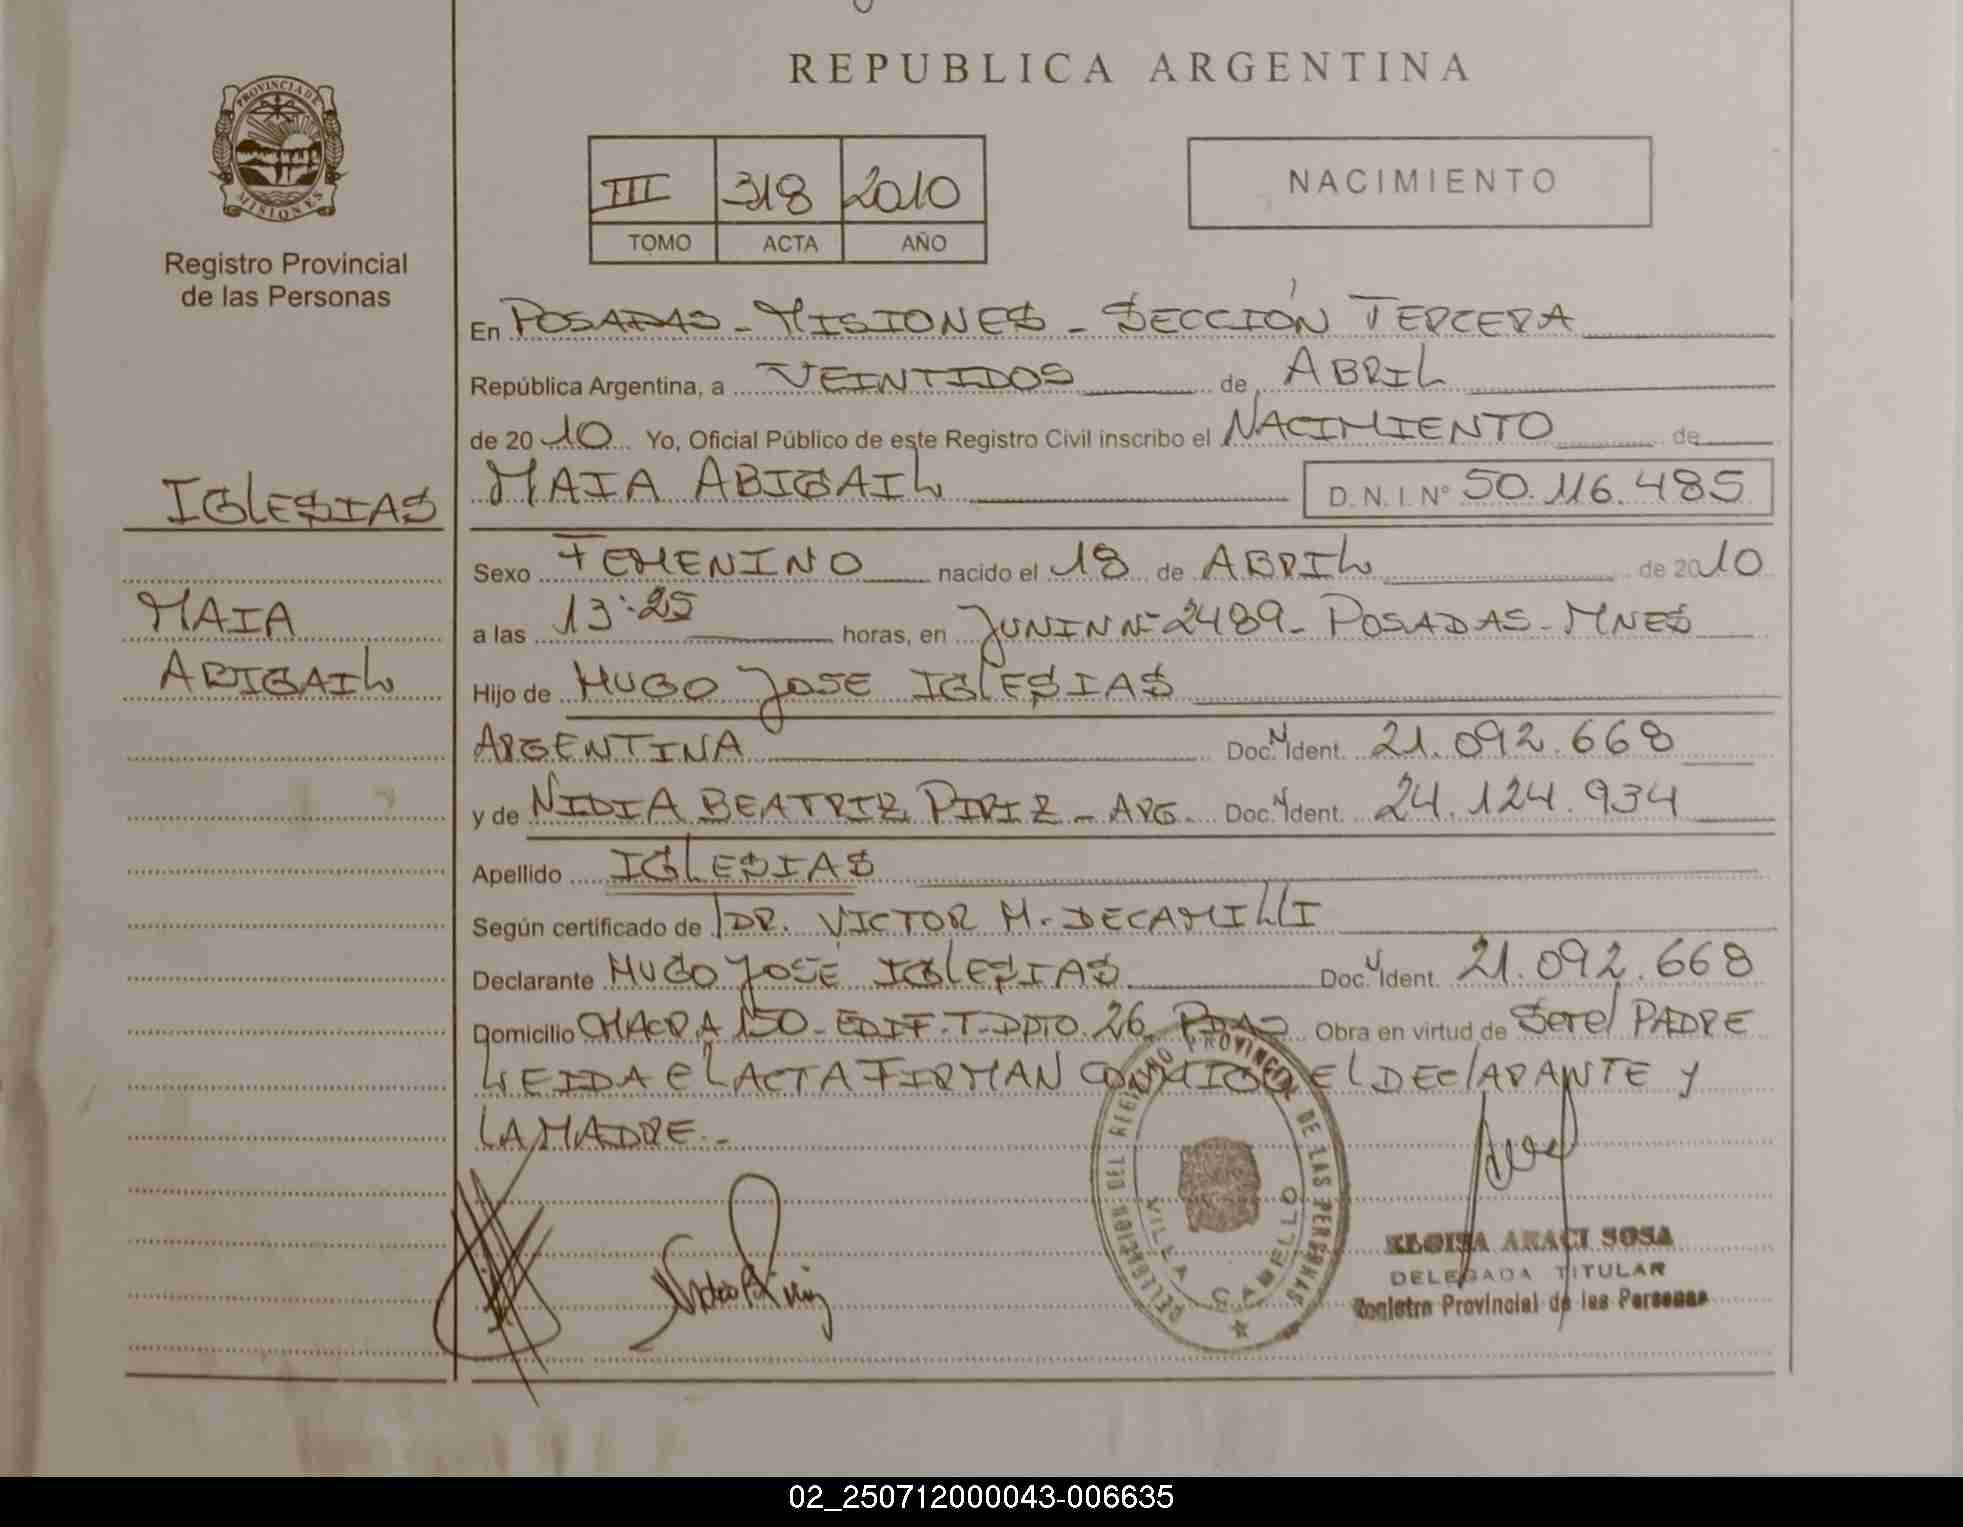 REPUBLICA ARGENTINA
PROVINCIA DE
MISIONES
Registro Provincial
de las Personas
III 318 2010
TOMO ACTA AÑO
NACIMIENTO
En POSADAS - MISIONES - SECCIÓN TERCERA
República Argentina, a VEINTIDOS de ABRIL
de 2010 Yo, Oficial Público de este Registro Civil inscribo el NACIMIENTO de
IGLESIAS
MAIA ABIGAIL D.N.I. Nº 50.116.485
Sexo FEMENINO nacido el 18 de ABRIL de 2010
MAIA
a las 13:25 horas, en JUNIN Nº 2489 - POSADAS - MNES
ABIGAIL
Hijo de HUGO JOSE IGLESIAS
ARGENTINA Doc. N. Ident. 21.092.668
y de NIDIA BEATRIZ PIRIZ - ARG. Doc. N. Ident. 24.124.934
Apellido IGLESIAS
Según certificado de DR. VICTOR M. DECAMILLI
Declarante HUGO JOSE IGLESIAS Doc. N. Ident. 21.092.668
Domicilio CHACRA 150 - EDIF. T - DPTO. 26 PDAS Obra en virtud de Ser el PADRE
LEIDA el ACTA FIRMAN CONMIGO EL DEClARANTE y
LA MADRE. -
DELEGACION DEL REGISTRO PROVINCIAL DE LAS PERSONAS
VILLA CABELLO
ELOISA ARACI SOSA
DELEGADA TITULAR
Registro Provincial de las Personas
02_250712000043-006635